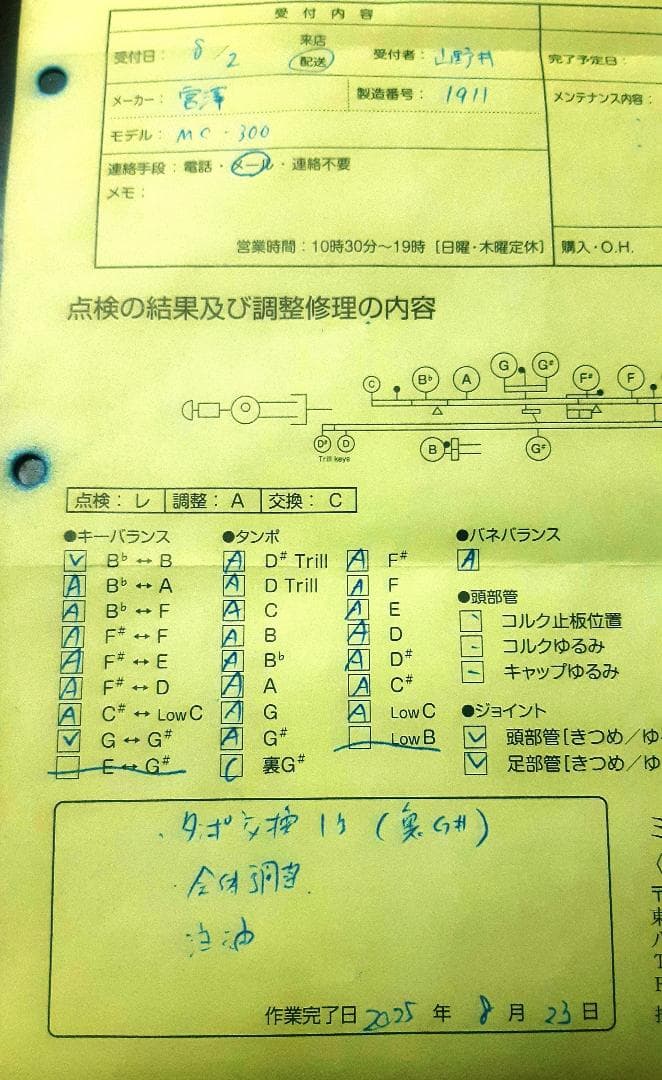 受付内容
受付日： 8/2 来店 配送 受付者： 山野井 完了予定日：
メーカー： 宮澤 製造番号： 1911 メンテナンス内容：
モデル： MC-300
連絡手段：電話・メール・連絡不要
メモ：
営業時間：10時30分〜19時［日曜・木曜定休］ 購入・O.H.
点検の結果及び調整修理の内容
C B♭ A G G# F# F
D# D B G#
Trill keys
点検：レ 調整：A 交換：C
●キーバランス ●タンポ ●バネバランス
レ B♭ ↔ B A D# Trill A F# A
A B♭ ↔ A A D Trill A F ●頭部管
A B♭ ↔ F A C A E コルク止板位置
A F# ↔ F A B A D コルクゆるみ
A F# ↔ E A B♭ A D# キャップゆるみ
A F# ↔ D A A A C#
A C# ↔ Low C A G A Low C ●ジョイント
レ G ↔ G# A G# Low B レ 頭部管［きつめ／ゆ
E ↔ G# C 裏G# レ 足部管［きつめ／ゆ
・タンポ交換 1ケ（裏G#）
・全体調整
注油
作業完了日 2025 年 8 月 23 日